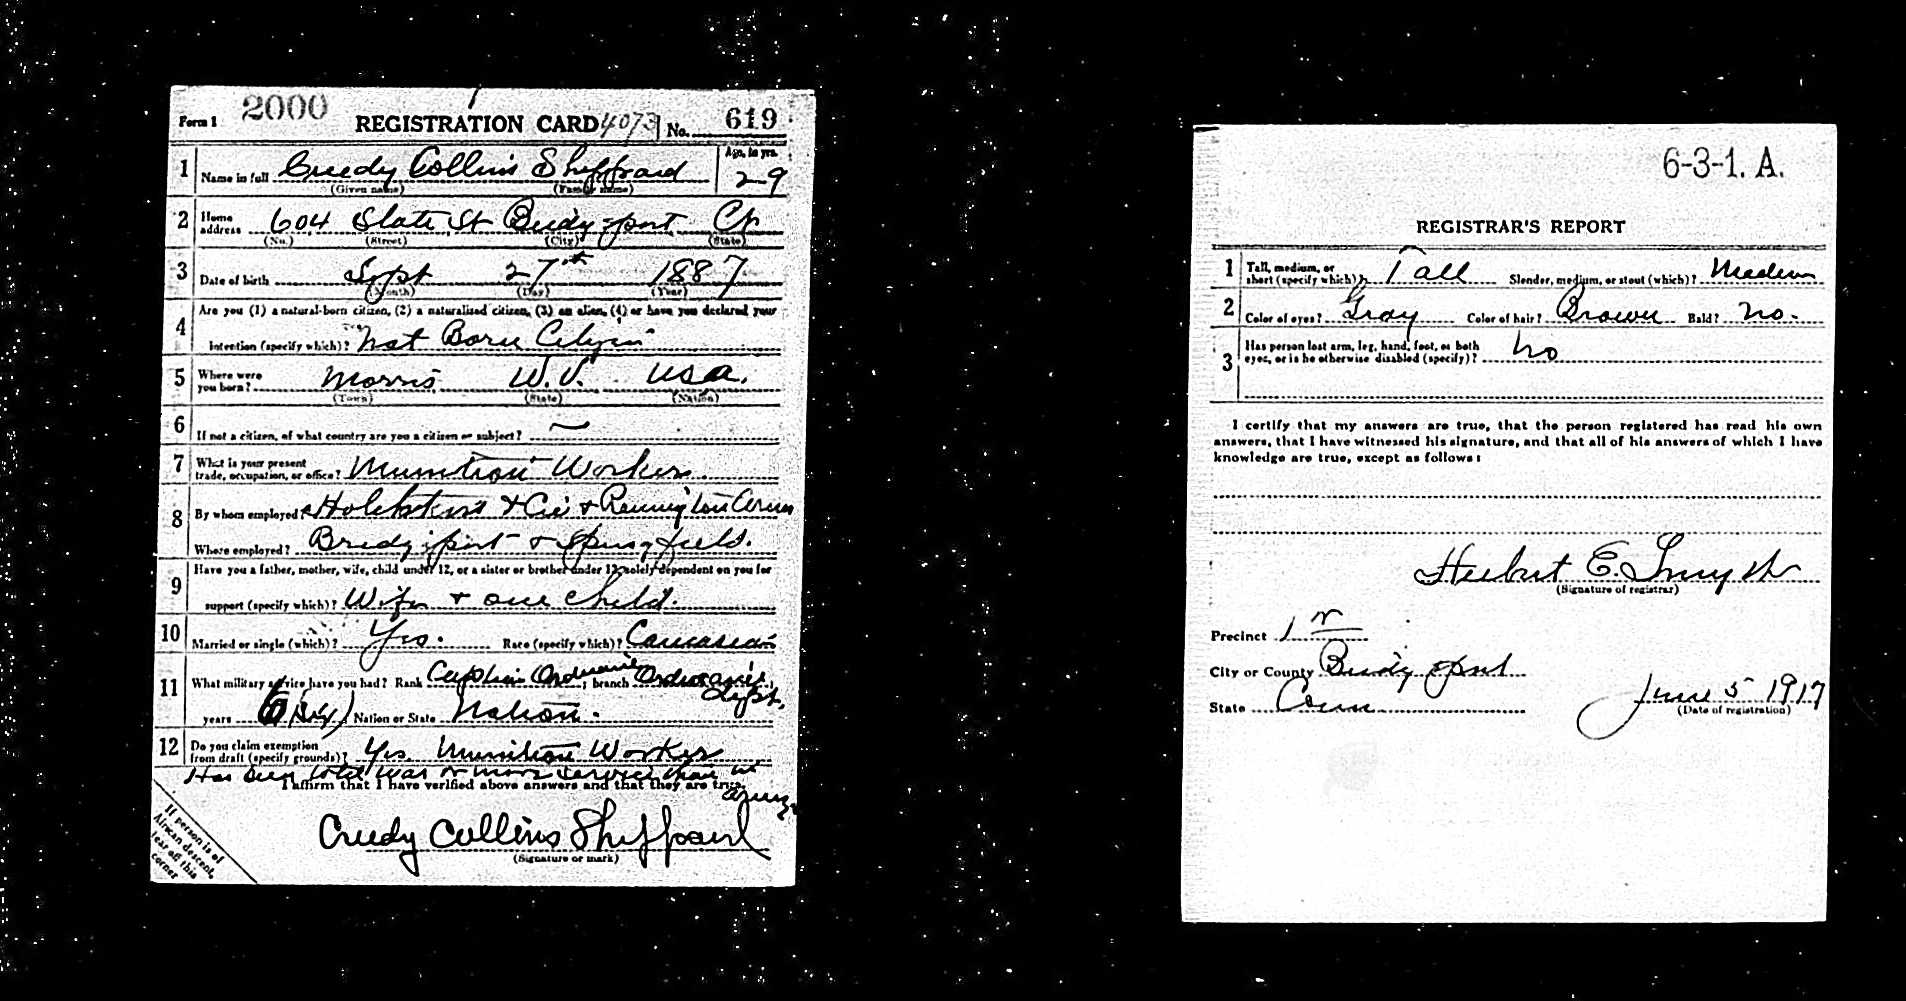 Form 1 2000 REGISTRATION CARD 4073 No. 619
1 Name in full Creedy Collins Sheppard Age, in yrs. 29
(Given name) (Family name)
2 Home address 604 State St Bridgeport Ct
(No.) (Street) (City) (State)
3 Date of birth Sept 27th 1887
(Month) (Day) (Year)
4 Are you (1) a natural-born citizen, (2) a naturalized citizen, (3) an alien, (4) or have you declared your
intention (specify which)? Nat Born Citizen
5 Where were you born? Morris W.V. USA.
(Town) (State) (Nation)
6 If not a citizen, of what country are you a citizen or subject? —
7 What is your present trade, occupation, or office? Munition Worker
8 By whom employed? & Cie & Remington Arms
Where employed? Bridgeport & Springfield.
9 Have you a father, mother, wife, child under 12, or a sister or brother under 12, solely dependent on you for
support (specify which)? Wife + one child.
10 Married or single (which)? Yes. Race (specify which)? Caucasian
11 What military service have you had? Rank Captain Ordnance; branch Ordnance Dept.
years 6 Nation or State Nation.
12 Do you claim exemption from draft (specify grounds)? Yes. Munition Worker
Has been told was of more service than in army
I affirm that I have verified above answers and that they are true.
Creedy Collins Sheppard
(Signature or mark)
If person is of African descent, tear off this corner
6-3-1. A.
REGISTRAR'S REPORT
1 Tall, medium, or short (specify which)? Tall Slender, medium, or stout (which)? Medium
2 Color of eyes? Gray Color of hair? Brown Bald? No.
3 Has person lost arm, leg, hand, foot, or both eyes, or is he otherwise disabled (specify)? No
I certify that my answers are true, that the person registered has read his own
answers, that I have witnessed his signature, and that all of his answers of which I have
knowledge are true, except as follows:
Herbert E. Smyth
(Signature of registrar)
Precinct 1
City or County Bridgeport
State Conn
June 5 1917
(Date of registration)